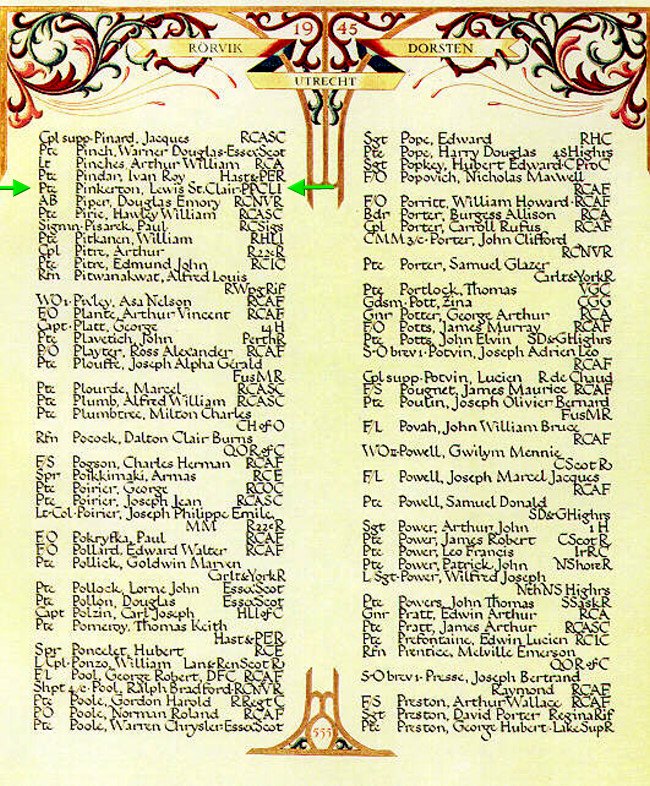 RÖRVIK
19 45
DORSTEN
UTRECHT
Cpl supp·Pinard, Jacques RCASC
Pte Pinch, Warner Douglas·EssexScot
Lt Pinches, Arthur William RCA
Pte Pindar, Ivan Roy Hast&PER
Pte Pinkerton, Lewis St.Clair·PPCLI
AB Piper, Douglas Emory RCNVR
Pte Pirie, Hawley William RCASC
Sigmn·Pisarek, Paul RCSigs
Pte Pitkanen, William RHLI
Cpl Pitre, Arthur R22eR
Pte Pitre, Edmund John RCIC
Rfn Pitwanakwat, Alfred Louis
RWpgRif
WO1·Pixley, Asa Nelson RCAF
F/O Plante, Arthur Vincent RCAF
Capt·Platt, George 14H
Pte Plavetich, John PerthR
P/O Playter, Ross Alexander RCAF
Pte Plouffe, Joseph Alpha Gérald
FusMR
Pte Plourde, Marcel RCASC
Pte Plumb, Alfred William RCASC
Pte Plumbtree, Milton Charles
CHofO
Rfn Pocock, Dalton Clair Burns
QORofC
F/S Pogson, Charles Herman RCAF
Spr Poikkimaki, Armas RCE
Pte Poirier, George RCOC
Pte Poirier, Joseph Jean RCASC
Lt·Col·Poirier, Joseph Philippe Emile,
MM R22eR
F/O Pokryfka, Paul RCAF
F/O Pollard, Edward Walter RCAF
Pte Pollick, Goldwin Marven
Carlt&YorkR
Pte Pollock, Lorne John EssexScot
Pte Pollon, Douglas EssexScot
Capt Polzin, Carl Joseph HLIofC
Pte Pomeroy, Thomas Keith
Hast&PER
Spr Poncelet, Hubert RCE
L Cpl·Ponzo, William Lan&RenScotR
F/L Pool, George Robert, DFC RCAF
Shpt 4/c·Pool, Ralph Bradford·RCNVR
Pte Poole, Gordon Harold RRegtC
P/O Poole, Norman Roland RCAF
Pte Poole, Warren Chrysler·EssexScot
Sgt Pope, Edward RHC
Pte Pope, Harry Douglas 48Highrs
Sgt Popkey, Hubert Edward·CProC
F/O Popovich, Nicholas Maxwell
RCAF
F/O Porritt, William Howard·RCAF
Bdr Porter, Burgess Allison RCA
Cpl Porter, Carroll Rufus RCAF
CMM 3/c·Porter, John Clifford
RCNVR
Pte Porter, Samuel Glazer
Carlt&YorkR
Pte Portlock, Thomas VGC
Gdsm·Pott, Zina CGG
Gnr Potter, George Arthur RCA
F/O Potts, James Murray RCAF
Pte Potts, John Elvin SD&GHighrs
S·O brev1·Potvin, Joseph Adrien Leo
RCAF
Cpl supp·Potvin, Lucien R de Chaud
F/S Pougnet, James Maurice RCAF
Pte Poulin, Joseph Olivier Bernard
FusMR
F/L Povah, John William Bruce
RCAF
WO II·Powell, Gwilym Mennie
CScotR
F/L Powell, Joseph Marcel Jacques
RCAF
Pte Powell, Samuel Donald
SD&GHighrs
Sgt Power, Arthur John 1H
Pte Power, James Robert CScotR
Pte Power, Leo Francis IrRC
Pte Power, Patrick John NShoreR
L Sgt·Power, Wilfred Joseph
NthNS Highrs
Pte Powers, John Thomas SSaskR
Gnr Pratt, Edwin Arthur RCA
Pte Pratt, James Arthur RCASC
Pte Prefontaine, Edwin Lucien RCIC
Rfn Prentice, Melville Emerson
QORofC
S·O brev1·Presse, Joseph Bertrand
Raymond RCAF
F/S Preston, Arthur Wallace RCAF
Sgt Preston, David Porter ReginaRif
Pte Preston, George Hubert·LakeSupR
555